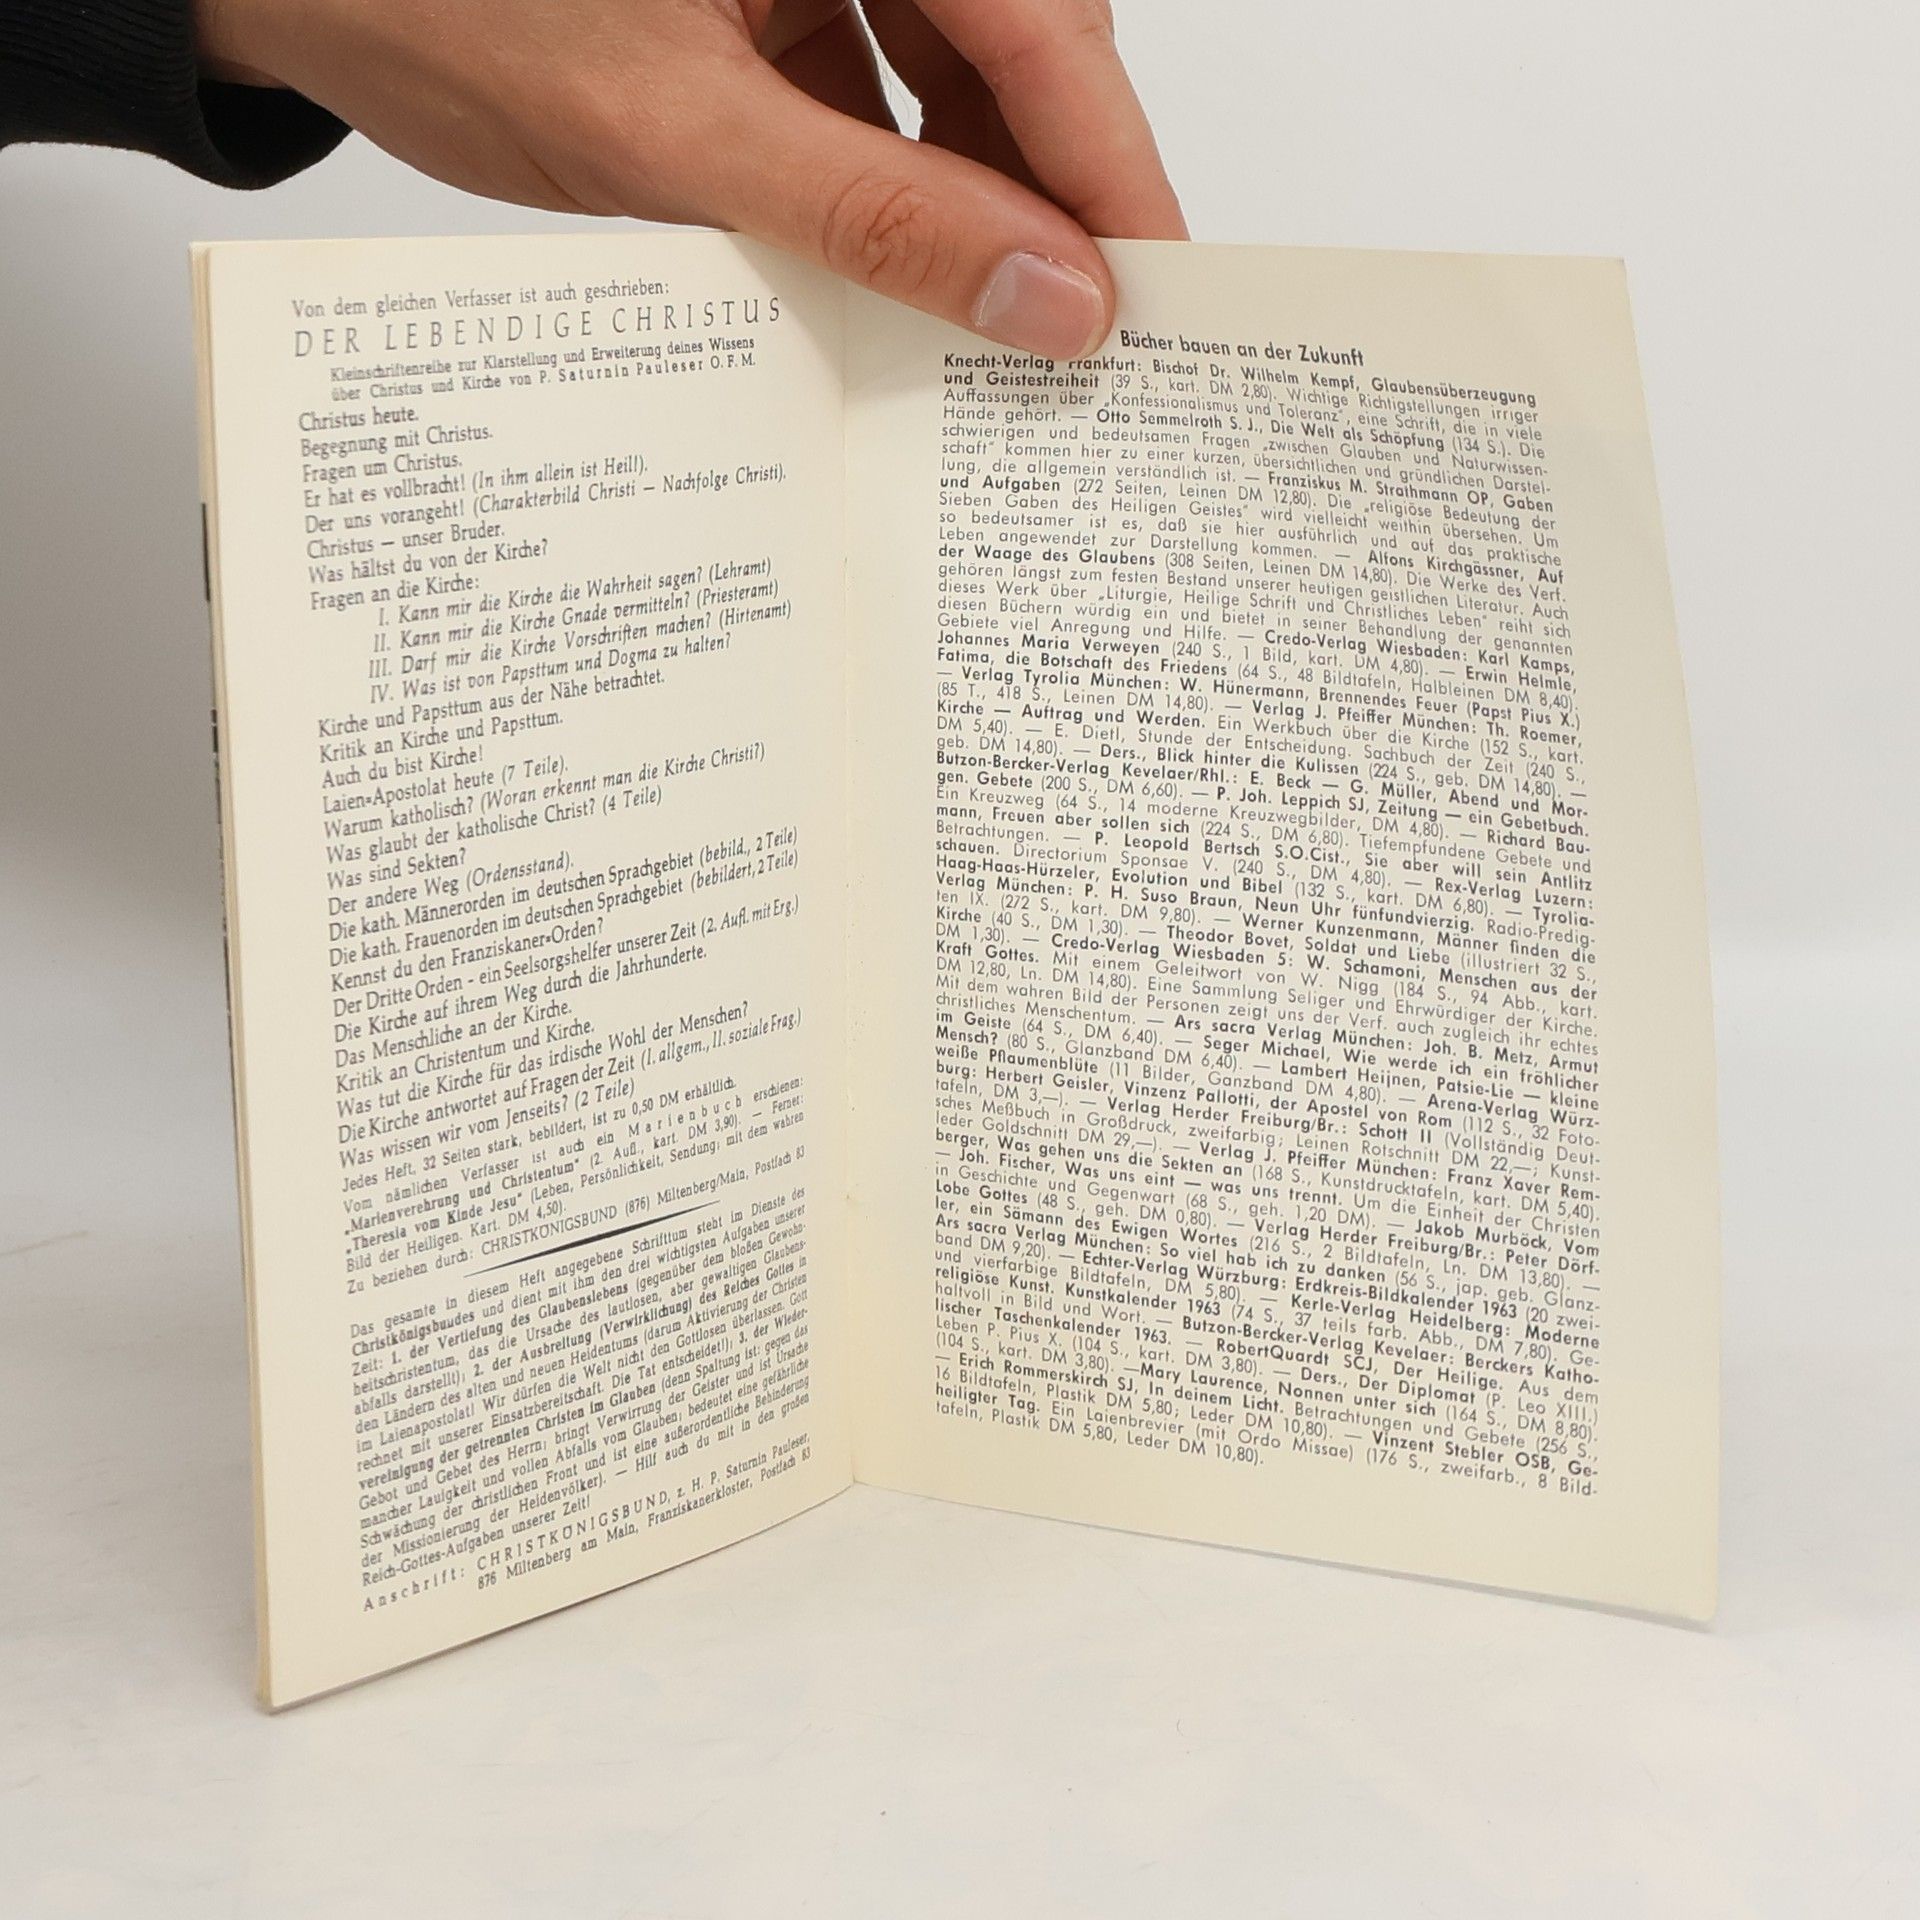 Von dem gleichen Verfasser ist auch geschrieben:
DER LEBENDIGE CHRISTUS
Kleinschriftenreihe zur Klarstellung und Erweiterung deines Wissens
über Christus und Kirche von P. Saturnin Pauleser O.F.M.
Christus heute.
Begegnung mit Christus.
Fragen um Christus.
Er hat es vollbracht! (In ihm allein ist Heil!).
Der uns vorangeht! (Charakterbild Christi — Nachfolge Christi).
Christus — unser Bruder.
Was hältst du von der Kirche?
Fragen an die Kirche:
I. Kann mir die Kirche die Wahrheit sagen? (Lehramt)
II. Kann mir die Kirche Gnade vermitteln? (Priesteramt)
III. Darf mir die Kirche Vorschriften machen? (Hirtenamt)
IV. Was ist von Papsttum und Dogma zu halten?
Kirche und Papsttum aus der Nähe betrachtet.
Kritik an Kirche und Papsttum.
Auch du bist Kirche!
Laien=Apostolat heute (7 Teile).
Warum katholisch? (Woran erkennt man die Kirche Christi?)
Was glaubt der katholische Christ? (4 Teile)
Was sind Sekten?
Der andere Weg (Ordensstand).
Die kath. Männerorden im deutschen Sprachgebiet (bebild., 2 Teile)
Die kath. Frauenorden im deutschen Sprachgebiet (bebildert, 2 Teile)
Kennst du den Franziskaner=Orden?
Der Dritte Orden - ein Seelsorgshelfer unserer Zeit (2. Aufl. mit Erg.)
Die Kirche auf ihrem Weg durch die Jahrhunderte.
Das Menschliche an der Kirche.
Kritik an Christentum und Kirche.
Was tut die Kirche für das irdische Wohl der Menschen?
Die Kirche antwortet auf Fragen der Zeit (I. allgem., II. soziale Frag.)
Was wissen wir vom Jenseits? (2 Teile)
Jedes Heft, 32 Seiten stark, bebildert, ist zu 0,50 DM erhältlich.
Vom nämlichen Verfasser ist auch ein Marienbuch erschienen:
„Marienverehrung und Christentum" (2. Aufl., kart. DM 3,90). — Ferner:
„Theresia vom Kinde Jesu" (Leben, Persönlichkeit, Sendung; mit dem wahren
Bild der Heiligen. Kart. DM 4,50).
Zu beziehen durch: CHRISTKÖNIGSBUND (876) Miltenberg/Main, Postfach 83
Das gesamte in diesem Heft angegebene Schrifttum steht im Dienste des
Christkönigsbundes und dient mit ihm den drei wichtigsten Aufgaben unserer
Zeit: 1. der Vertiefung des Glaubenslebens (gegenüber dem bloßen Gewohn-
heitschristentum, das die Ursache des lautlosen, aber gewaltigen Glaubens-
abfalls darstellt); 2. der Ausbreitung (Verwirklichung) des Reiches Gottes in
den Ländern des alten und neuen Heidentums (darum Aktivierung der Christen
im Laienapostolat! Wir dürfen die Welt nicht den Gottlosen überlassen. Gott
rechnet mit unserer Einsatzbereitschaft. Die Tat entscheidet!); 3. der Wieder-
vereinigung der getrennten Christen im Glauben (denn Spaltung ist: gegen das
Gebot und Gebet des Herrn; bringt Verwirrung der Geister und ist Ursache
mancher Lauigkeit und vollen Abfalls vom Glauben; bedeutet eine gefährliche
Schwächung der christlichen Front und ist eine außerordentliche Behinderung
der Missionierung der Heidenvölker). — Hilf auch du mit in den großen
Reich-Gottes-Aufgaben unserer Zeit!
Anschrift: CHRISTKÖNIGSBUND, z. H. P. Saturnin Pauleser,
876 Miltenberg am Main, Franziskanerkloster, Postfach 83
Bücher bauen an der Zukunft
Knecht-Verlag Frankfurt: Bischof Dr. Wilhelm Kempf, Glaubensüberzeugung
und Geistestreiheit (39 S., kart. DM 2,80). Wichtige Richtigstellungen irriger
Auffassungen über „Konfessionalismus und Toleranz", eine Schrift, die in viele
Hände gehört. — Otto Semmelroth S. J., Die Welt als Schöpfung (134 S.). Die
schwierigen und bedeutsamen Fragen „zwischen Glauben und Naturwissen-
schaft" kommen hier zu einer kurzen, übersichtlichen und gründlichen Darstel-
lung, die allgemein verständlich ist. — Franziskus M. Strathmann OP, Gaben
und Aufgaben (272 Seiten, Leinen DM 12,80). Die „religiöse Bedeutung der
Sieben Gaben des Heiligen Geistes" wird vielleicht weithin übersehen. Um
so bedeutsamer ist es, daß sie hier ausführlich und auf das praktische
Leben angewendet zur Darstellung kommen. — Alfons Kirchgässner, Auf
der Waage des Glaubens (308 Seiten, Leinen DM 14,80). Die Werke des Verf.
gehören längst zum festen Bestand unserer heutigen geistlichen Literatur. Auch
dieses Werk über „Liturgie, Heilige Schrift und Christliches Leben" reiht sich
diesen Büchern würdig ein und bietet in seiner Behandlung der genannten
Gebiete viel Anregung und Hilfe. — Credo-Verlag Wiesbaden: Karl Kamps,
Johannes Maria Verweyen (240 S., 1 Bild, kart. DM 4,80). — Erwin Helmle,
Fatima, die Botschaft des Friedens (64 S., 48 Bildtafeln, Halbleinen DM 8,40).
— Verlag Tyrolia München: W. Hünermann, Brennendes Feuer (Papst Pius X.)
(85 T., 418 S., Leinen DM 14,80). — Verlag J. Pfeiffer München: Th. Roemer,
Kirche — Auftrag und Werden. Ein Werkbuch über die Kirche (152 S., kart.
DM 5,40). — E. Dietl, Stunde der Entscheidung. Sachbuch der Zeit (240 S.,
geb. DM 14,80). — Ders., Blick hinter die Kulissen (224 S., geb. DM 14,80). —
Butzon-Bercker-Verlag Kevelaer/Rhl.: E. Beck — G. Müller, Abend und Mor-
gen. Gebete (200 S., DM 6,60). — P. Joh. Leppich SJ, Zeitung — ein Gebetbuch.
Ein Kreuzweg (64 S., 14 moderne Kreuzwegbilder, DM 4,80). — Richard Bau-
mann, Freuen aber sollen sich (224 S., DM 6,80). Tiefempfundene Gebete und
Betrachtungen. — P. Leopold Bertsch S.O.Cist., Sie aber will sein Antlitz
schauen. Directorium Sponsae V. (240 S., DM 4,80). — Rex-Verlag Luzern:
Haag-Haas-Hürzeler, Evolution und Bibel (132 S., kart. DM 6,80). — Tyrolia-
Verlag München: P. H. Suso Braun, Neun Uhr fünfundvierzig. Radio-Predig-
ten IX. (272 S., kart. DM 9,80). — Werner Kunzenmann, Männer finden die
Kirche (40 S., DM 1,30). — Theodor Bovet, Soldat und Liebe (illustriert 32 S.,
DM 1,30). — Credo-Verlag Wiesbaden 5: W. Schamoni, Menschen aus der
Kraft Gottes. Mit einem Geleitwort von W. Nigg (184 S., 94 Abb., kart.
DM 12,80, Ln. DM 14,80). Eine Sammlung Seliger und Ehrwürdiger der Kirche.
Mit dem wahren Bild der Personen zeigt uns der Verf. auch zugleich ihr echtes
christliches Menschentum. — Ars sacra Verlag München: Joh. B. Metz, Armut
im Geiste (64 S., DM 6,40). — Seger Michael, Wie werde ich ein fröhlicher
Mensch? (80 S., Glanzband DM 6,40). — Lambert Heijnen, Patsie-Lie — kleine
weiße Pflaumenblüte (11 Bilder, Ganzband DM 4,80). — Arena-Verlag Würz-
burg: Herbert Geisler, Vinzenz Pallotti, der Apostel von Rom (112 S., 32 Foto-
tafeln, DM 3,—). — Verlag Herder Freiburg/Br.: Schott II (Vollständig Deut-
sches Meßbuch in Großdruck, zweifarbig; Leinen Rotschnitt DM 22,—; Kunst-
leder Goldschnitt DM 29,—). — Verlag J. Pfeiffer München: Franz Xaver Rem-
berger, Was gehen uns die Sekten an (168 S., Kunstdrucktafeln, kart. DM 5,40).
— Joh. Fischer, Was uns eint — was uns trennt. Um die Einheit der Christen
in Geschichte und Gegenwart (68 S., geh. 1,20 DM). — Jakob Murböck, Vom
Lobe Gottes (48 S., geh. DM 0,80). — Verlag Herder Freiburg/Br.: Peter Dörf-
ler, ein Sämann des Ewigen Wortes (216 S., 2 Bildtafeln, Ln. DM 13,80). —
Ars sacra Verlag München: So viel hab ich zu danken (56 S., jap. geb. Glanz-
band DM 9,20). — Echter-Verlag Würzburg: Erdkreis-Bildkalender 1963 (20 zwei-
und vierfarbige Bildtafeln, DM 5,80). — Kerle-Verlag Heidelberg: Moderne
religiöse Kunst. Kunstkalender 1963 (74 S., 37 teils farb. Abb., DM 7,80). Ge-
haltvoll in Bild und Wort. — Butzon-Bercker-Verlag Kevelaer: Berckers Katho-
lischer Taschenkalender 1963. — RobertQuardt SCJ, Der Heilige. Aus dem
Leben P. Pius X. (104 S., kart. DM 3,80). — Ders., Der Diplomat (P. Leo XIII.)
(104 S., kart. DM 3,80). —Mary Laurence, Nonnen unter sich (164 S., DM 8,80).
— Erich Rommerskirch SJ, In deinem Licht. Betrachtungen und Gebete (256 S.,
16 Bildtafeln, Plastik DM 5,80; Leder DM 10,80). — Vinzent Stebler OSB, Ge-
heiligter Tag. Ein Laienbrevier (mit Ordo Missae) (176 S., zweifarb., 8 Bild-
tafeln, Plastik DM 5,80, Leder DM 10,80).